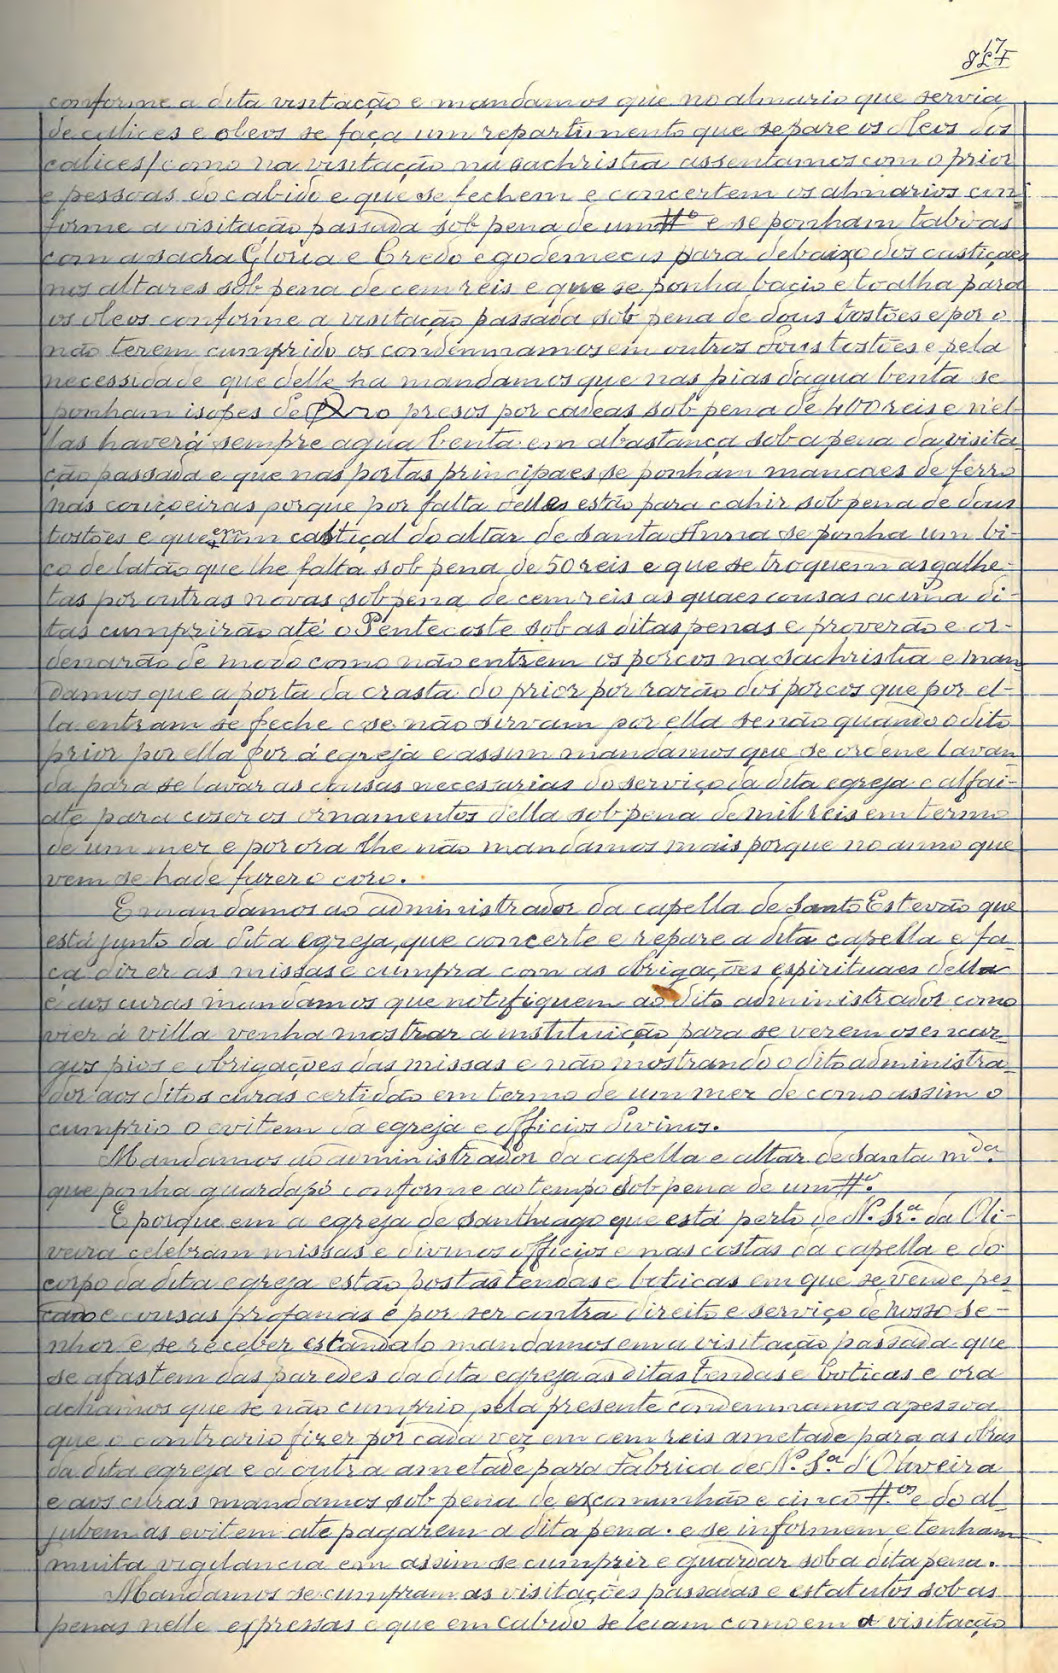 17
conforme a dita visitação e mandamos que no almario que servia
de calices e oleos se faça um repartimento que separe os oleos dos
calices/como na visitação na sachristia assentamos com o prior
e pessoas do cabido e que se fechem e concertem os almarios con-
forme a visitação passada sob pena de um #.º e se ponham taboas
com a sacra Gloria e Credo e godemecis para debaixo dos castiçaes
nos altares sob pena de cem reis e que se ponha bacio e toalha para
os oleos conforme a visitação passada sob pena de dous tostões e por o
não terem cumprido os condemnamos em outros dous tostões e pela
necessidade que delle ha mandamos que nas pias dagua benta se
ponham isopes de presos por cadeas sob pena de 400 reis e nel-
las haverá sempre agua benta em abastança sob a pena da visita-
ção passada e que nas portas principaes se ponham mancaes de ferro
nas couçoeiras porque por falta delles estão para cahir sob pena de dous
tostões e que em um castiçal do altar de Santa Anna se ponha um bi-
co de latão que lhe falta sob pena de 50 reis e que se troquem as galhe-
tas por outras novas sob pena de cem reis as quaes cousas acima di-
tas cumprirão até o Pentecoste sob as ditas penas e proverão e or-
denarão de modo como não entrem os porcos na sachristia e man-
damos que a porta da crasta do prior por razão dos porcos que por el-
la entram se feche e se não sirvam por ella senão quando o dito
prior por ella for á egreja e assim mandamos que se ordene lavan-
da para se lavar as cousas necessarias do serviço da dita egreja e alfai-
ate para coser os ornamentos della sob pena de mil reis em termo
de um mez e por ora lhe não mandamos mais porque no anno que
vem se hade fazer o coro.
E mandamos ao administrador da capella de Santo Estevão que
está junto da dita egreja, que concerte e repare a dita capella e fa-
ça dizer as missas e cumpra com as obrigações espirituaes della
e aos curas mandamos que notifiquem ao dito administrador como
vier á villa venha mostrar a instituição para se verem os encar-
gos pios e obrigações das missas e não mostrando o dito administra-
dor aos ditos curas certidão em termo de um mez de como assim o
cumprio o evitem da egreja e officios divinos.
Mandamos ao administrador da capella e altar de Santa m.da
que ponha guardapó conforme ao tempo sob pena de um #.º.
E porque em a egreja de Santhiago que está perto de N.ª Sr.ª da Oli-
veira celebram missas e divinos officios e nas costas da capella e do
corpo da dita egreja estão postas tendas e boticas em que se vende pes-
cado e cousas profanas e por ser contra direito e serviço de nosso se-
nhor e se receber escandalo mandamos em a visitação passada que
se afastem das paredes da dita egreja as ditas tendas e boticas e ora
achamos que se não cumprio, pela presente condemnamos a pessoa
que o contrario fizer por cada vez em cem reis ametade para as obras
da dita egreja e a outra ametade para Fabrica de N.ª S.ª d'Oliveira
e aos curas mandamos sob pena de excomunhão e cinco #.os e do al-
jube m as evitem até pagarem a dita pena. e se informem e tenham
muita vigilancia em assim se cumprir e guardar sob a dita pena.
Mandamos se cumpram as visitações passadas e estatutos sob as
penas nelle expressas e que em cabido se leiam como em a visitação